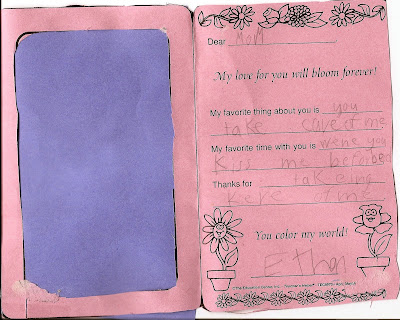 Dear Mom
My love for you will bloom forever!
My favorite thing about you is you
take care of me
My favorite time with you is wene you
Kiss me before bed
Thanks for takeing
Kere of me
You color my world!
Ethan